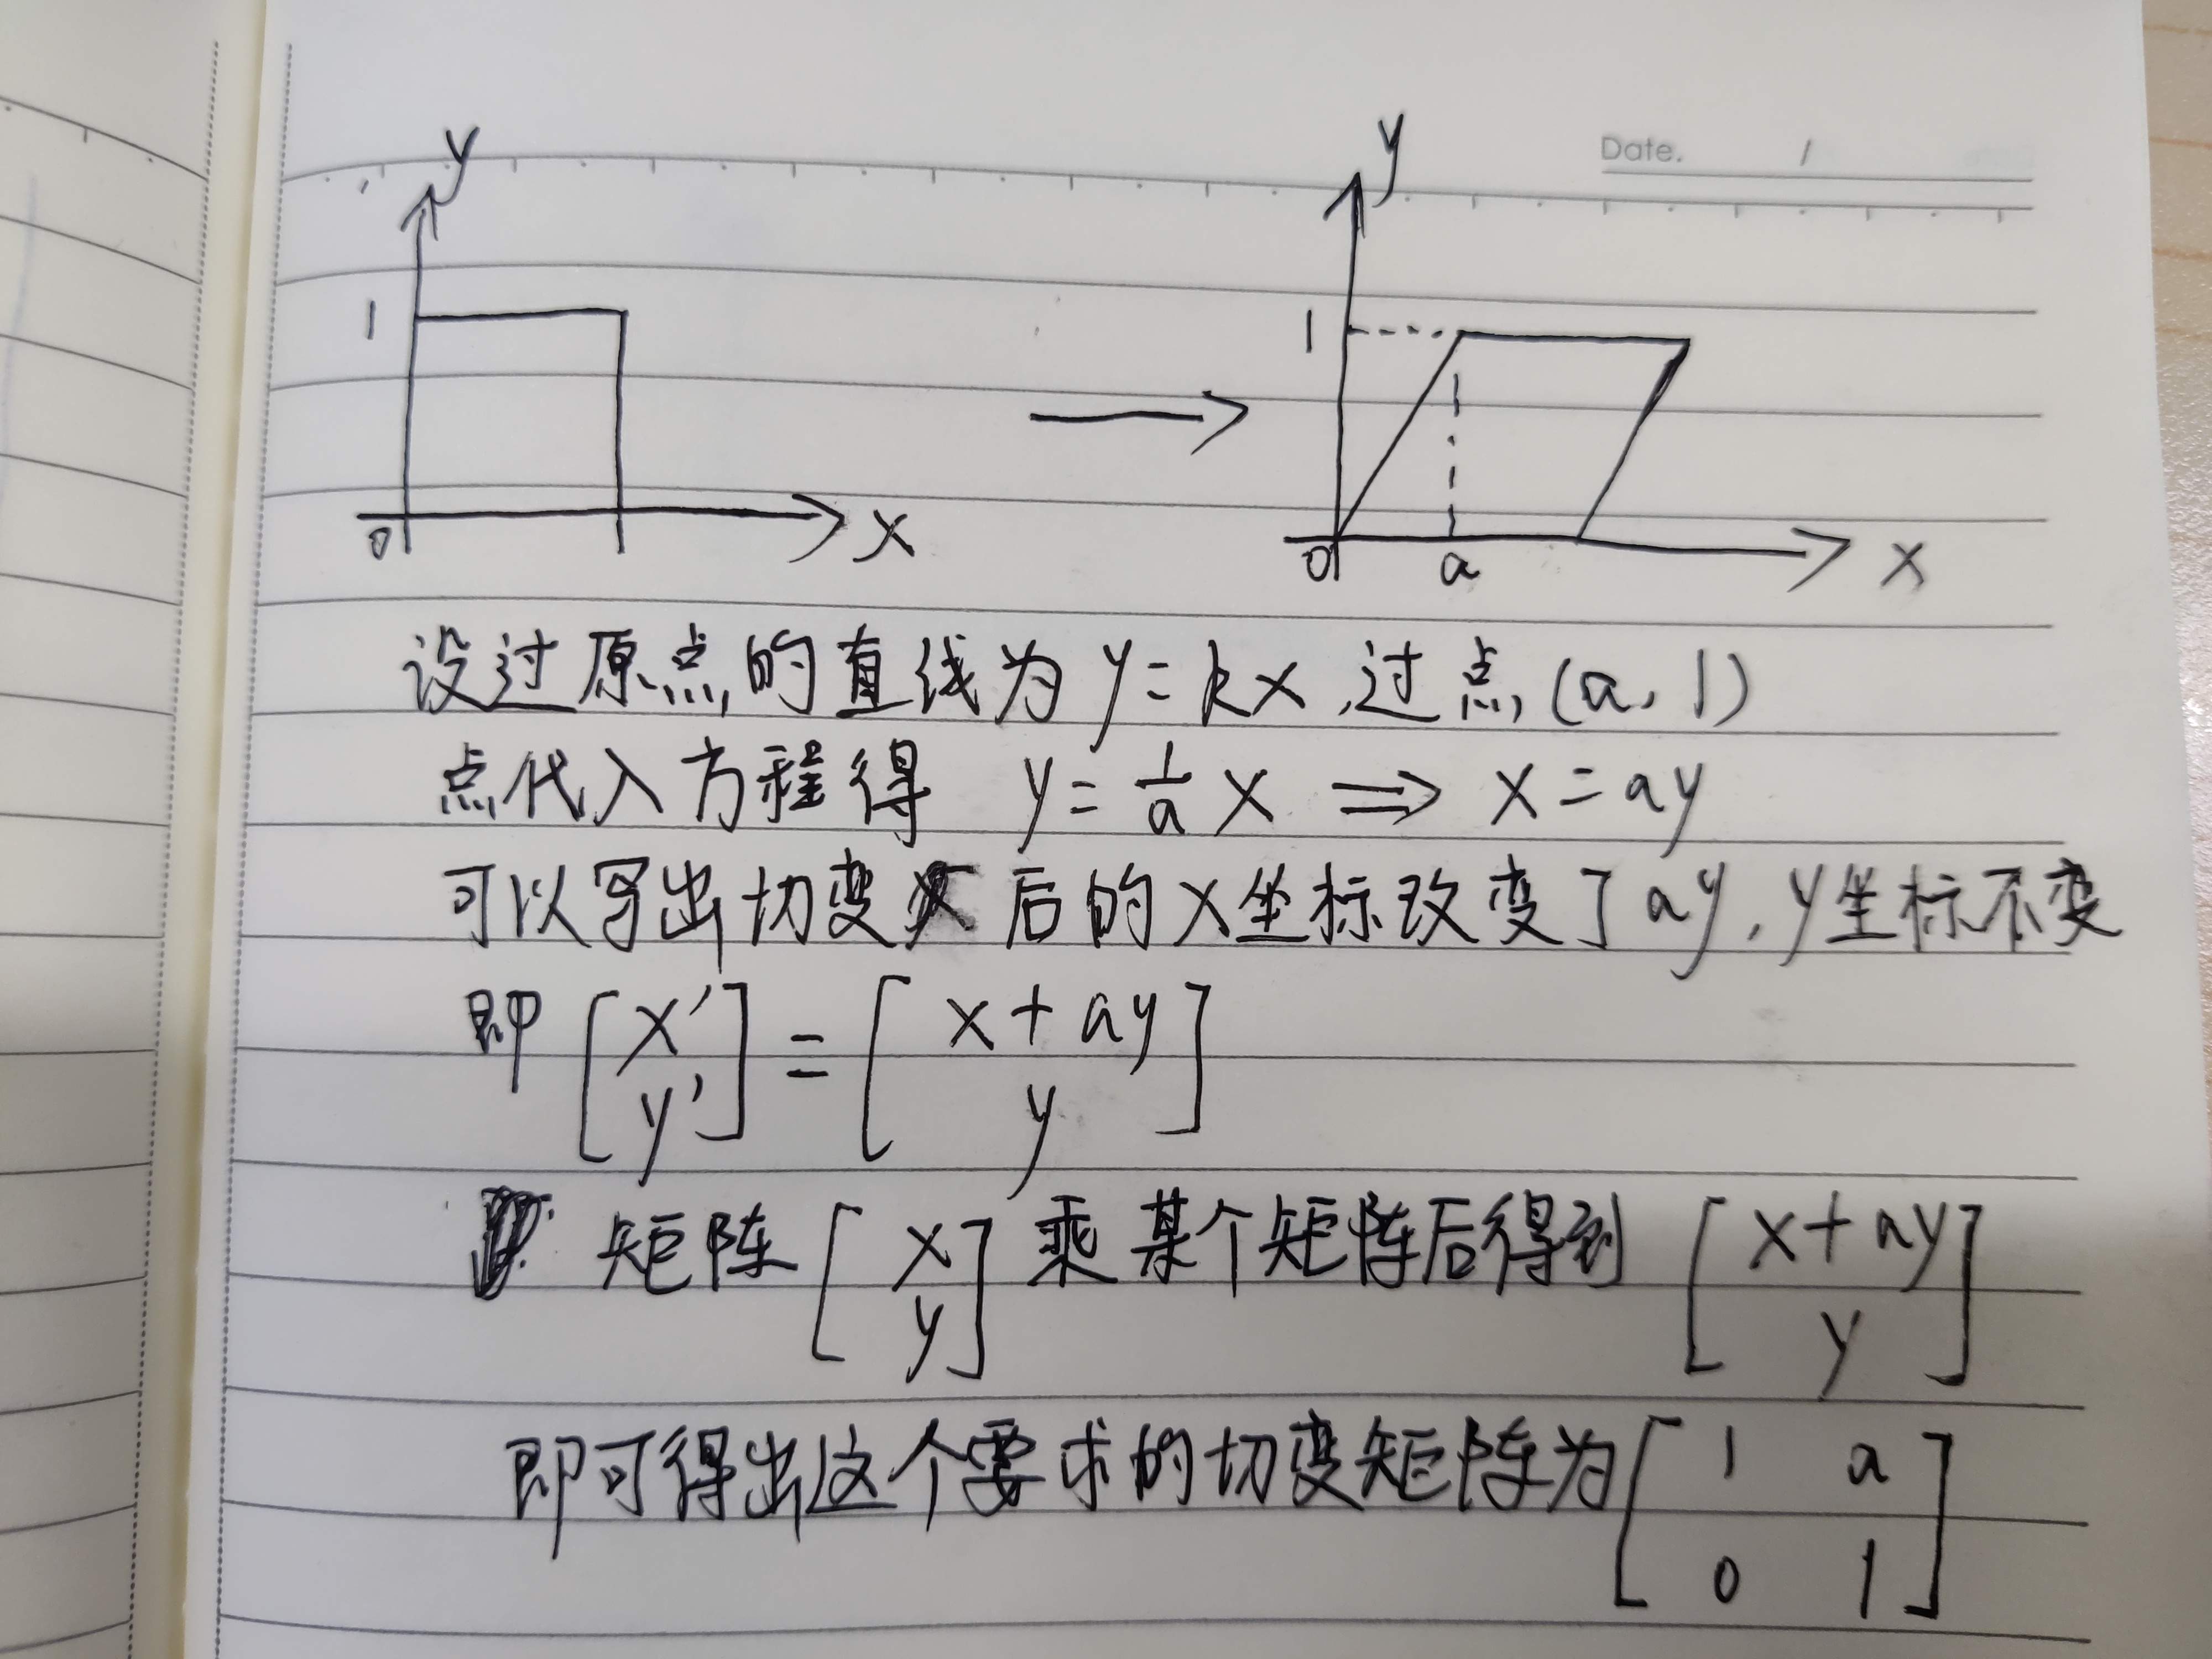 Date. /
y y
1 1
0 x 0 a x
设过原点的直线为 y=kx,过点(a,1)
点代入方程得 y=1/a x ⟹ x=ay
可以写出切变后的x坐标改变了ay,y坐标不变
即 [x' y'] = [x+ay y]
矩阵 [x y] 乘某个矩阵后得到 [x+ay y]
即可得出这个要求的切变矩阵为 [1 a 0 1]